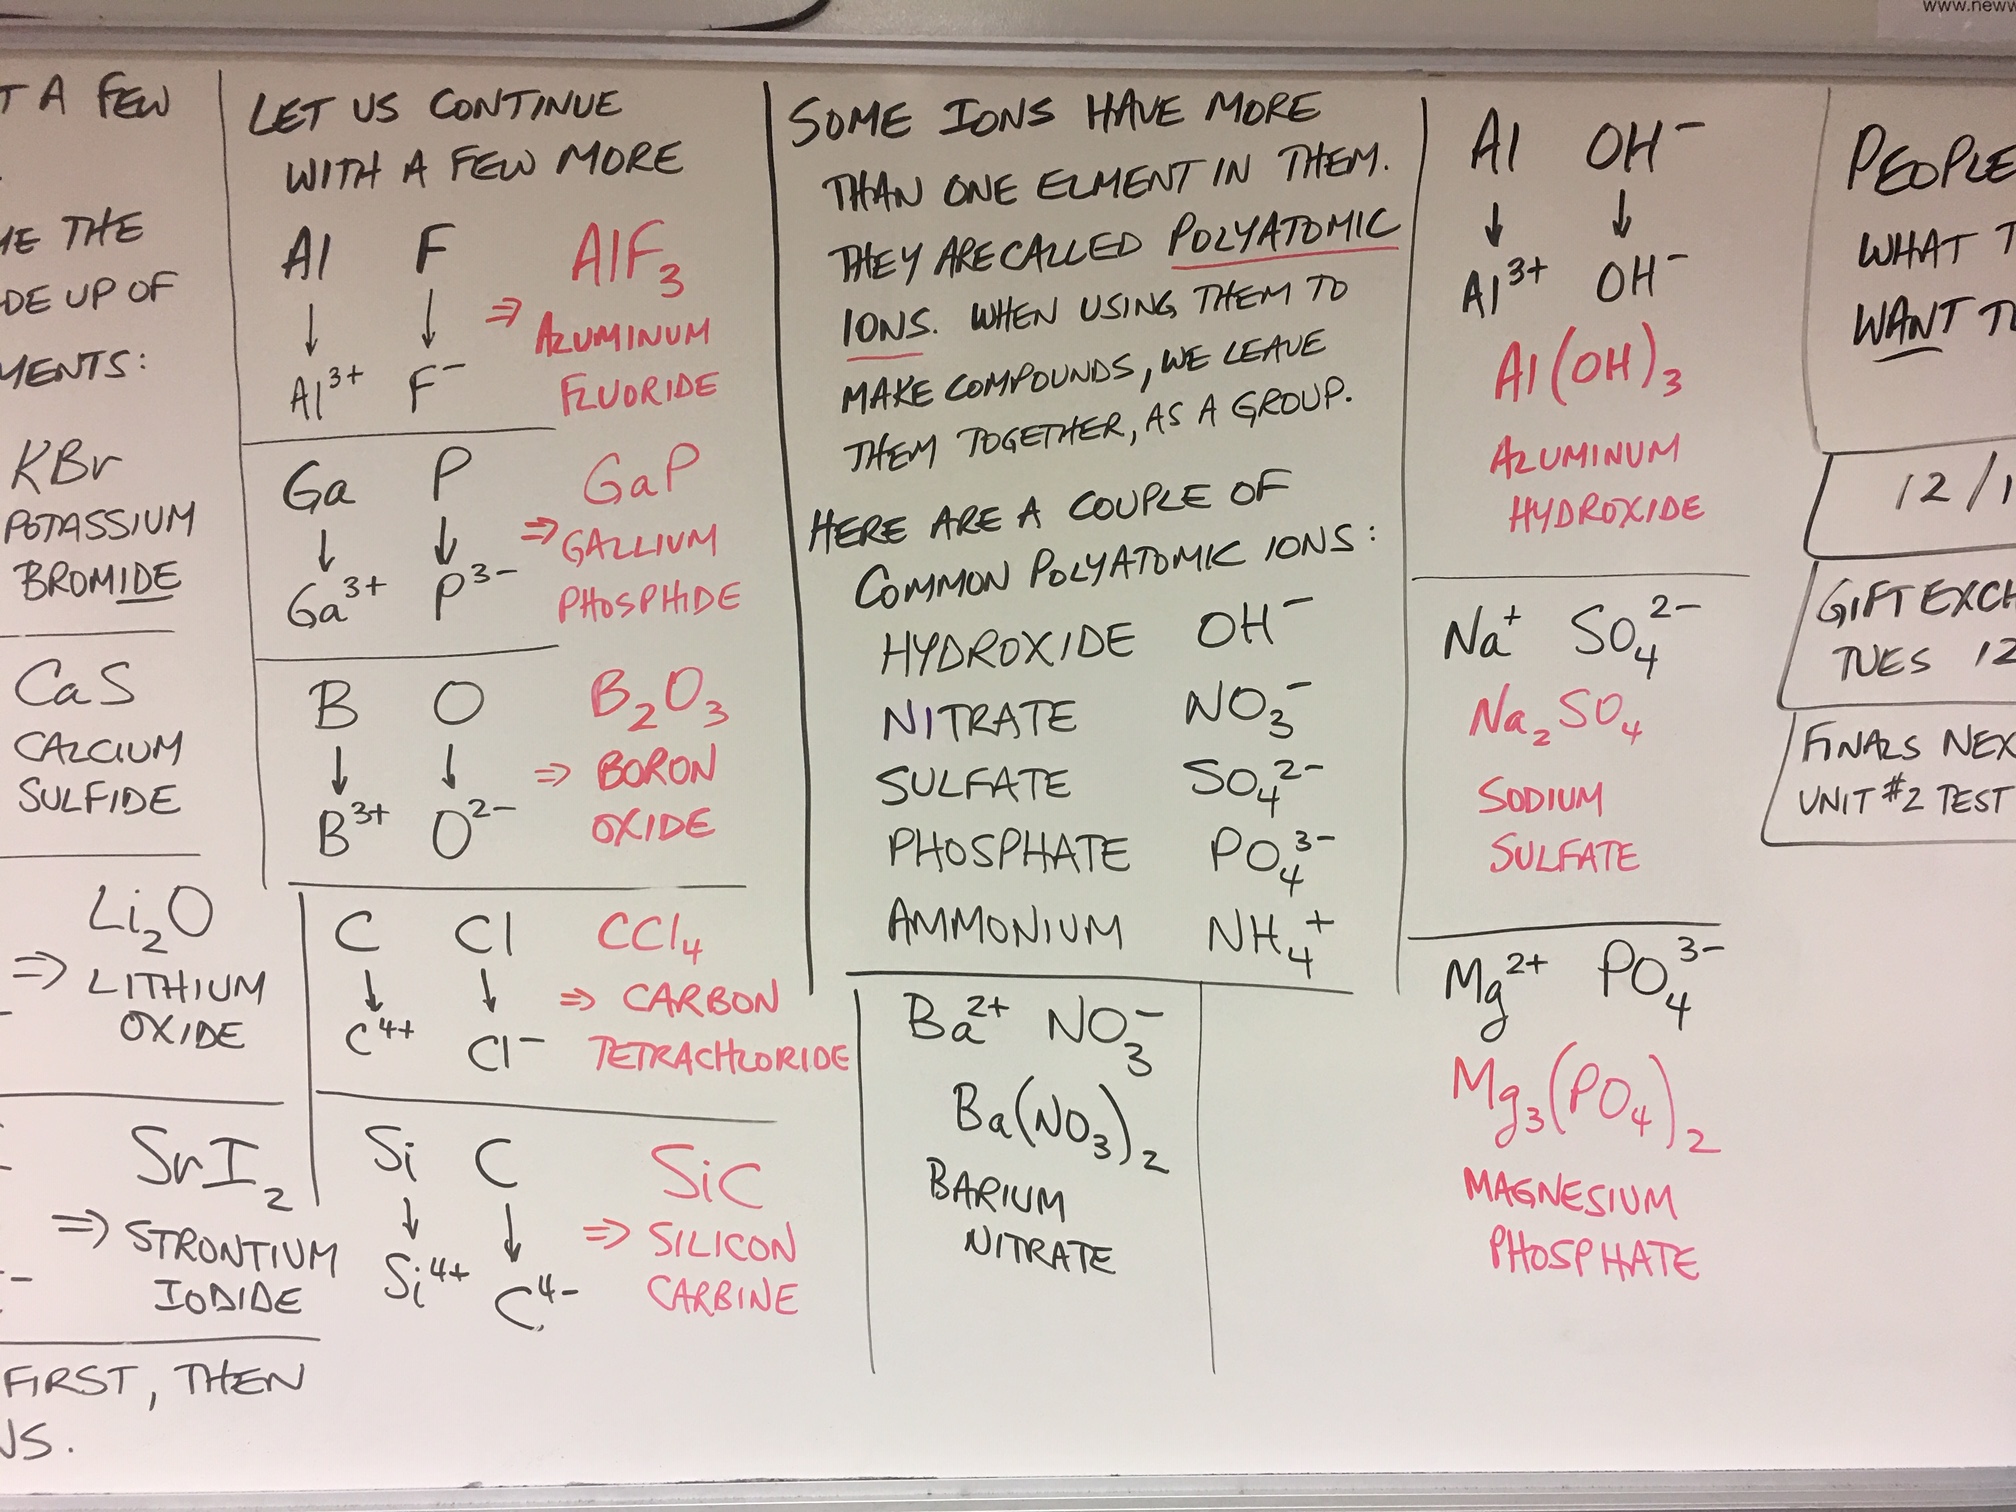 www.neww
T A FEW
ME THE
DE UP OF
MENTS:
KBr
POTASSIUM
BROMIDE
CaS
CALCIUM
SULFIDE
Li₂O
⇒ LITHIUM
OXIDE
SrI₂
⇒ STRONTIUM
IODIDE
FIRST, THEN
NS.
LET US CONTINUE
WITH A FEW MORE
Al F AlF₃
↓ ↓ ⇒ ALUMINUM
Al³⁺ F⁻ FLUORIDE
Ga P GaP
↓ ↓ ⇒ GALLIUM
Ga³⁺ P³⁻ PHOSPHIDE
B O B₂O₃
↓ ↓ ⇒ BORON
B³⁺ O²⁻ OXIDE
C Cl CCl₄
↓ ↓ ⇒ CARBON
C⁴⁺ Cl⁻ TETRACHLORIDE
Si C SiC
↓ ↓ ⇒ SILICON
Si⁴⁺ C⁴⁻ CARBINE
SOME IONS HAVE MORE
THAN ONE ELMENT IN THEM.
THEY ARE CALLED POLYATOMIC
IONS. WHEN USING THEM TO
MAKE COMPOUNDS, WE LEAVE
THEM TOGETHER, AS A GROUP.
HERE ARE A COUPLE OF
COMMON POLYATOMIC IONS:
HYDROXIDE OH⁻
NITRATE NO₃⁻
SULFATE SO₄²⁻
PHOSPHATE PO₄³⁻
AMMONIUM NH₄⁺
Ba²⁺ NO₃⁻
Ba(NO₃)₂
BARIUM
NITRATE
Al OH⁻
↓ ↓
Al³⁺ OH⁻
Al(OH)₃
ALUMINUM
HYDROXIDE
Na⁺ SO₄²⁻
Na₂SO₄
SODIUM
SULFATE
Mg²⁺ PO₄³⁻
Mg₃(PO₄)₂
MAGNESIUM
PHOSPHATE
PEOPLE
WHAT T
WANT T
12/1
GIFT EXCH
TUES 12
FINALS NEX
UNIT #2 TEST